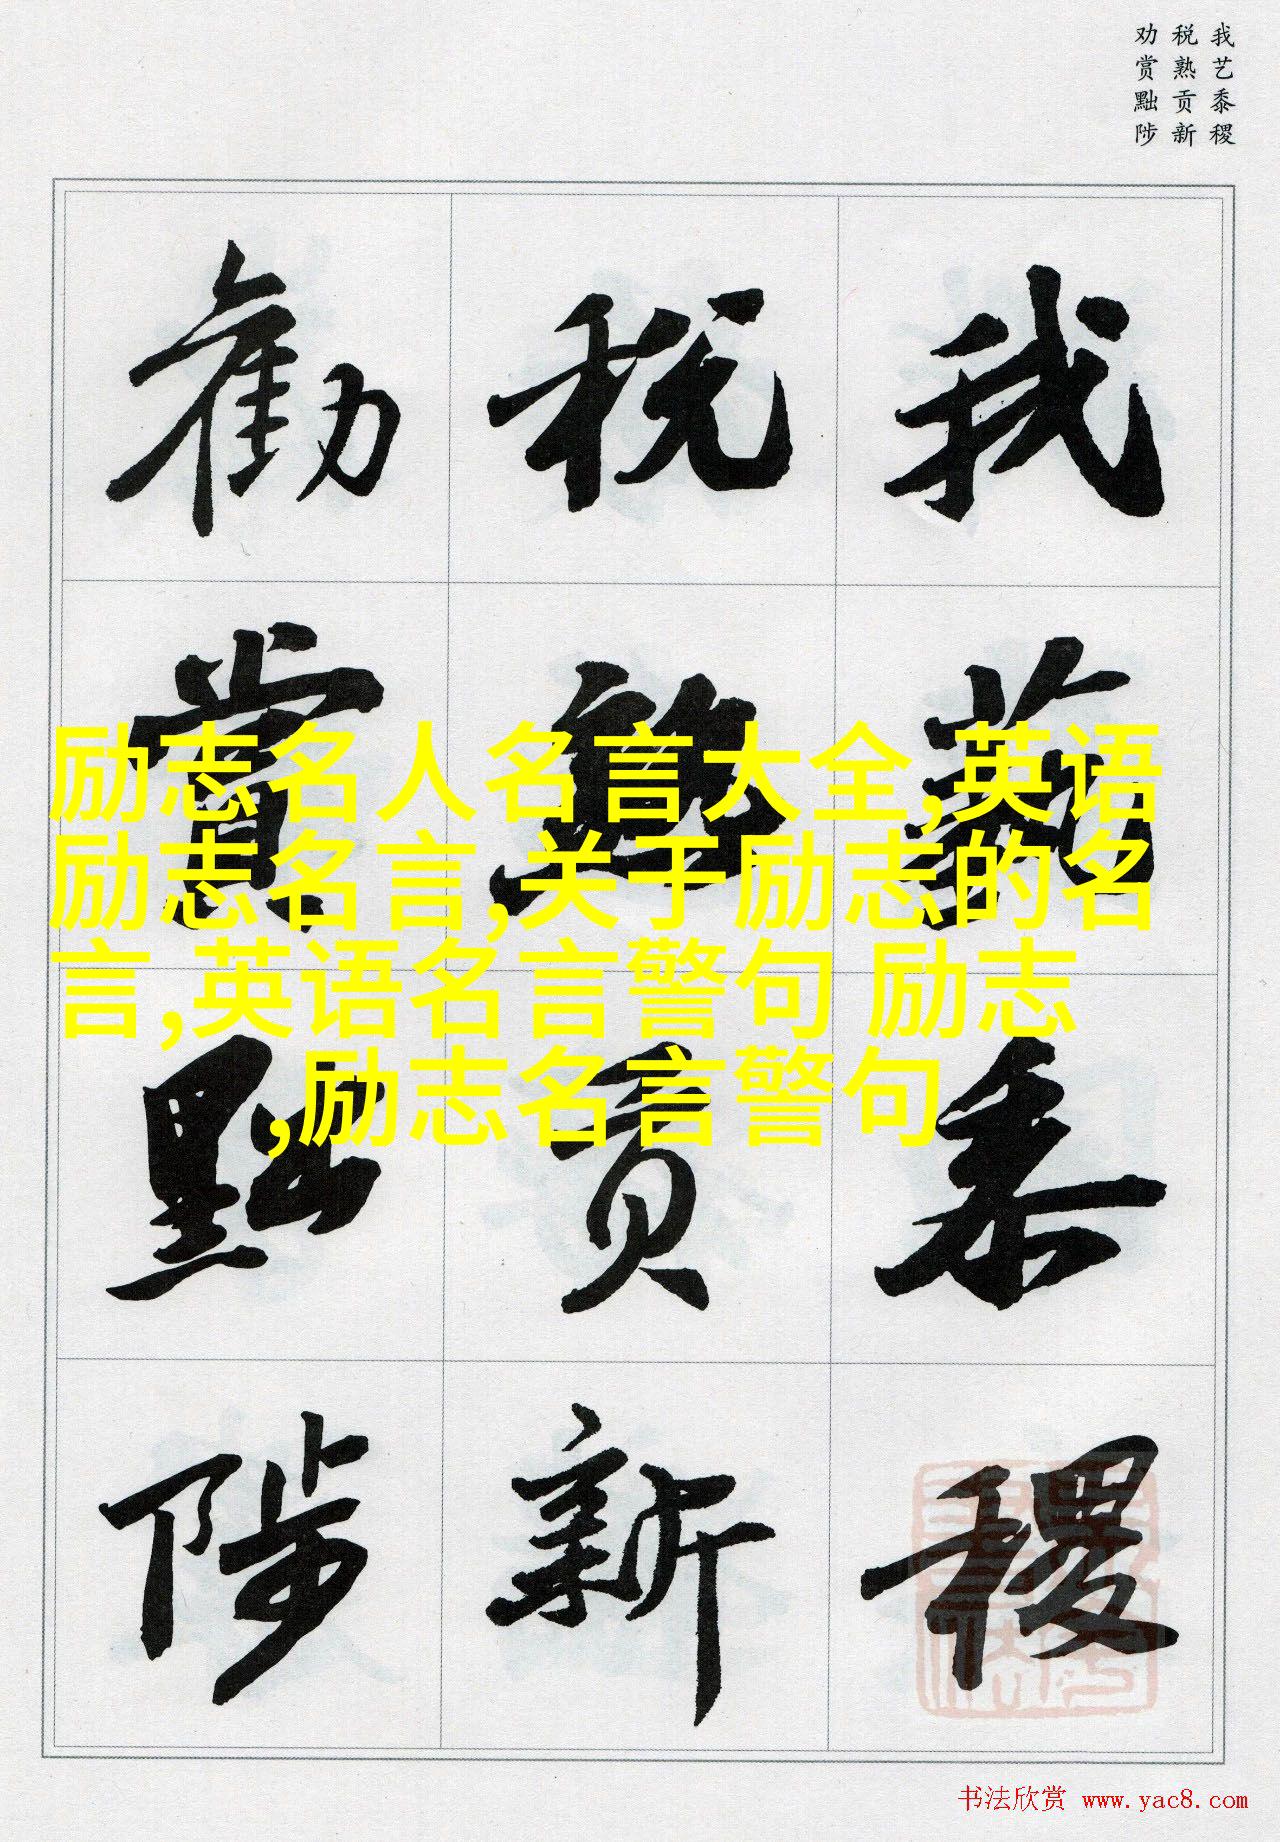 我艺黍稷
税熟贡新
劝赏黜陟
我藝黍稷
税熟貢新
勸賞黜陟
励志名人名言大全,英语
励志名言,关于励志的名
言,英语名言警句 励志
,励志名言警句
书法欣赏 www.yac8.com